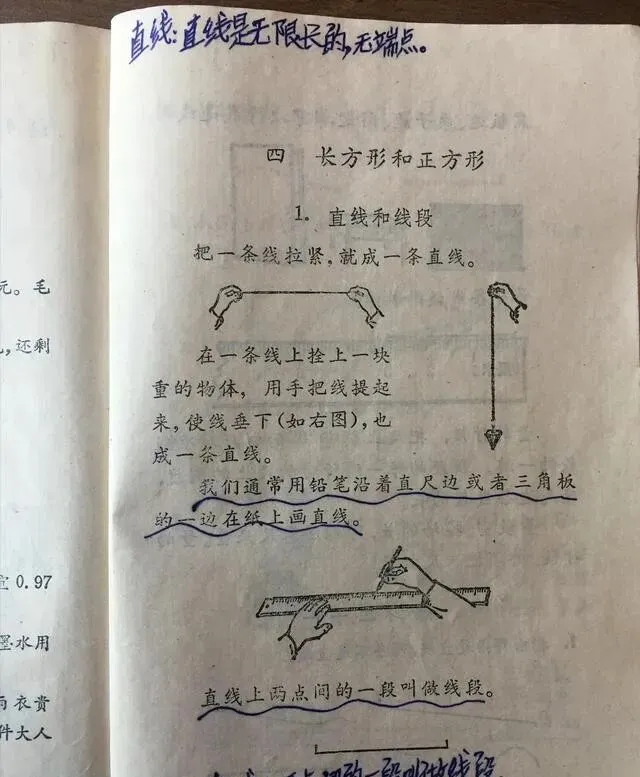 直线:直线是无限长的,无端点。
四 长方形和正方形
1。 直线和线段
把一条线拉紧,就成一条直线。
在一条线上拴上一块
重的物体, 用手把线提起
来,使线垂下(如右图),也
成一条直线。
我们通常用铅笔沿着直尺边或者三角板
的一边在纸上画直线。
直线上两点间的一段叫做线段。
的一段叫做线段
元。 毛
,还剩
0.97
墨水用
雨衣贵
件大人